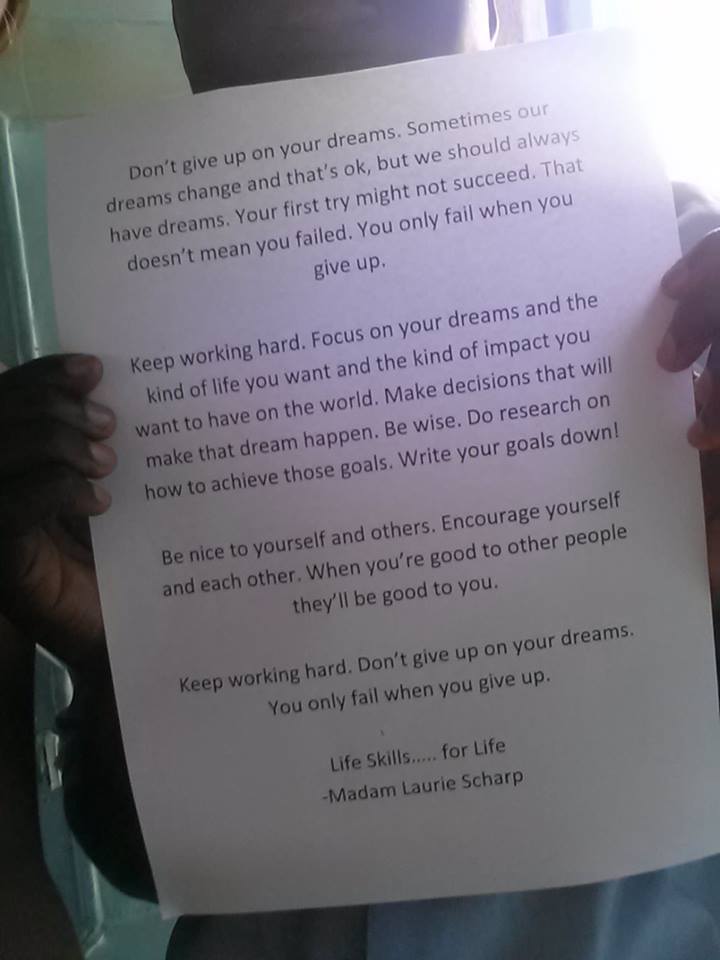 Don't give up on your dreams. Sometimes our
dreams change and that's ok, but we should always
have dreams. Your first try might not succeed. That
doesn't mean you failed. You only fail when you
give up.
Keep working hard. Focus on your dreams and the
kind of life you want and the kind of impact you
want to have on the world. Make decisions that will
make that dream happen. Be wise. Do research on
how to achieve those goals. Write your goals down!
Be nice to yourself and others. Encourage yourself
and each other. When you're good to other people
they'll be good to you.
Keep working hard. Don't give up on your dreams.
You only fail when you give up.
Life Skills..... for Life
-Madam Laurie Scharp